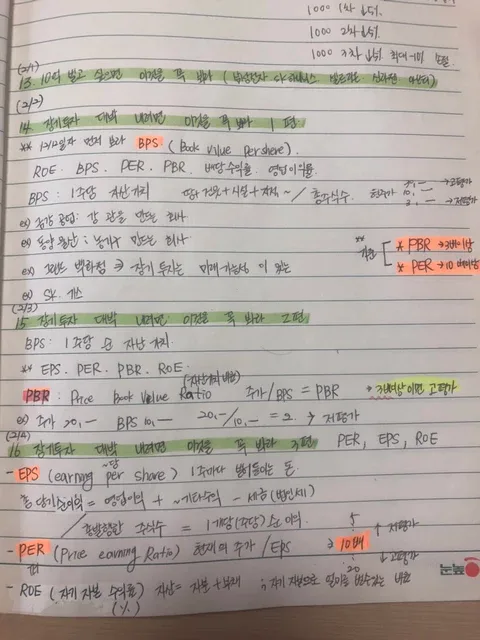 1000 1차 ↓5%.
1000 2차 ↓5%.
1000 3차 ↓5%. 최대 -10% 손절.
(2/1)
13. 10억 벌고 싶으면 이것을 꼭 봐라
(2/2)
14. 장기투자 대박 내려면 이것을 꼭 봐라 1편.
** 먼저 봐라 BPS (Book Value Pershere).
ROE. BPS. PER. PBR. 배당수익률. 영업이익률.
BPS : 1주당 자산가치 땅 + 건물 + 시설 + ~ / 총주식수. 현주가 10,- → 고평가
3,- → 저평가
ex) 만드는 회사
ex) 동양물산 ; 농기구 만드는 회사
** 기준 * PBR → 3배이상
* PER → 10배이상
ex) 그랜드 백화점 → 장기투자는 미래가능성이 있는
ex) SK. 가스
(2/3)
15 장기투자 대박 내려면 이것을 꼭 봐라 2편.
BPS : 1주당 순자산가치.
** EPS. PER. PBR. ROE.
PBR : Price Book Value Ratio 주가/BPS = PBR * 3배이상이면 고평가
ex) 주가 20,- BPS 10,- 20,-/10,- = 2. → 저평가
(2/4)
16 장기투자 대박 내려면 이것을 꼭 봐라 3편 PER, EPS, ROE
- EPS (earning per share) 1주마다 벌어들이는 돈.
당기순이익 = 영업이익 + ~기타수익 - 세금 (법인세)
/ 총발행한 주식수 = 1개당 (주당) 순이익.
5 ↑ 저평가
- PER (Price earning Ratio) 현재의 주가 / EPS → 10배
20 ↓ 고평가
- ROE (자기자본 수익률) 자산 = 자본 + 부채 ; 자기자본으로 비율
(%)
눈높이